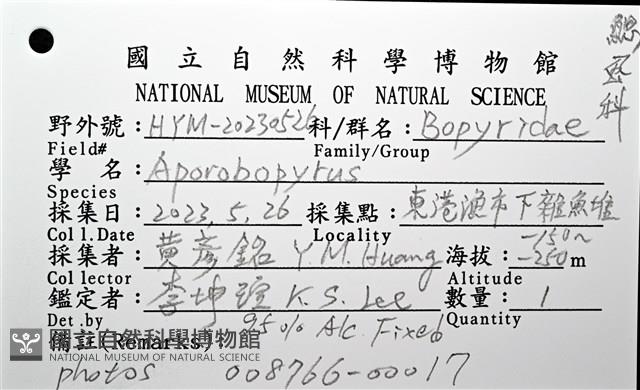 國立自然科學博物館
NATIONAL MUSEUM OF NATURAL SCIENCE
總蝨科
野外號：HYM-20230526 科/群名：Bopyridae
Field# Family/Group
學 名：Aporobopyrus
Species
採集日：2023.5.26 採集點：東港漁市下雜魚堆
Coll.Date Locality
採集者：黃彥銘 Y.M.Huang 海拔：-150~-250m
Collector Altitude
鑑定者：李坤瑄 K.S.Lee 數量：1
Det.by Quantity
備註(Remarks) 95% Alc. Fixed
國立自然科學博物館
NATIONAL MUSEUM OF NATURAL SCIENCE
photos 008766-00017